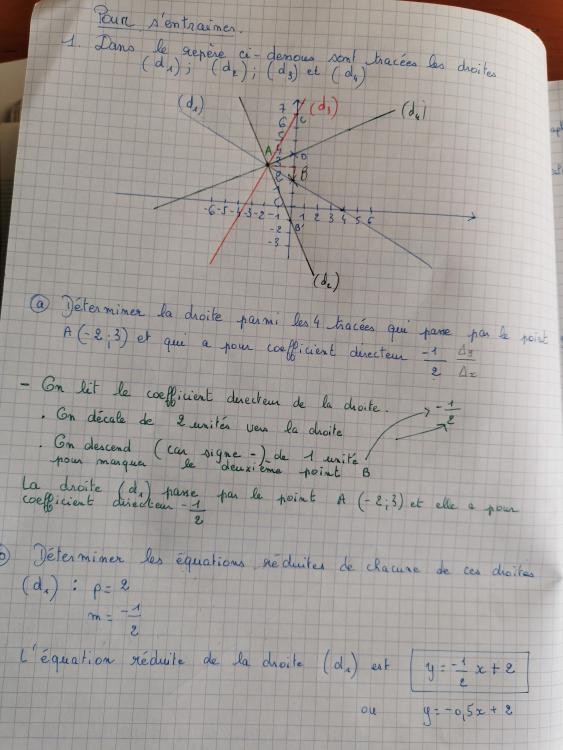 Pour s'entraîner.
1. Dans le repère ci-dessous sont tracées les droites
(d1) ; (d2) ; (d3) et (d4)
(d1) (d3) (d4)
7
6 C
5
A 4 D
3
2 B
1
0
-6 -5 -4 -3 -2 -1 1 2 3 4 5 6
B'
-2
-3
(d2)
a Déterminer la droite parmi les 4 tracées qui passe par le point
A (-2 ; 3) et qui a pour coefficient directeur -1/2 Δy/Δx
- On lit le coefficient directeur de la droite. -1/2
. On décale de 2 unités vers la droite
. On descend (car signe -) de 1 unité
pour marquer le deuxième point B
La droite (d1) passe par le point A (-2 ; 3) et elle a pour
coefficient directeur -1/2
b Déterminer les équations réduites de chacune de ces droites
(d1) : p = 2
m = -1/2
L'équation réduite de la droite (d1) est y = -1/2 x + 2
ou y = -0,5x + 2